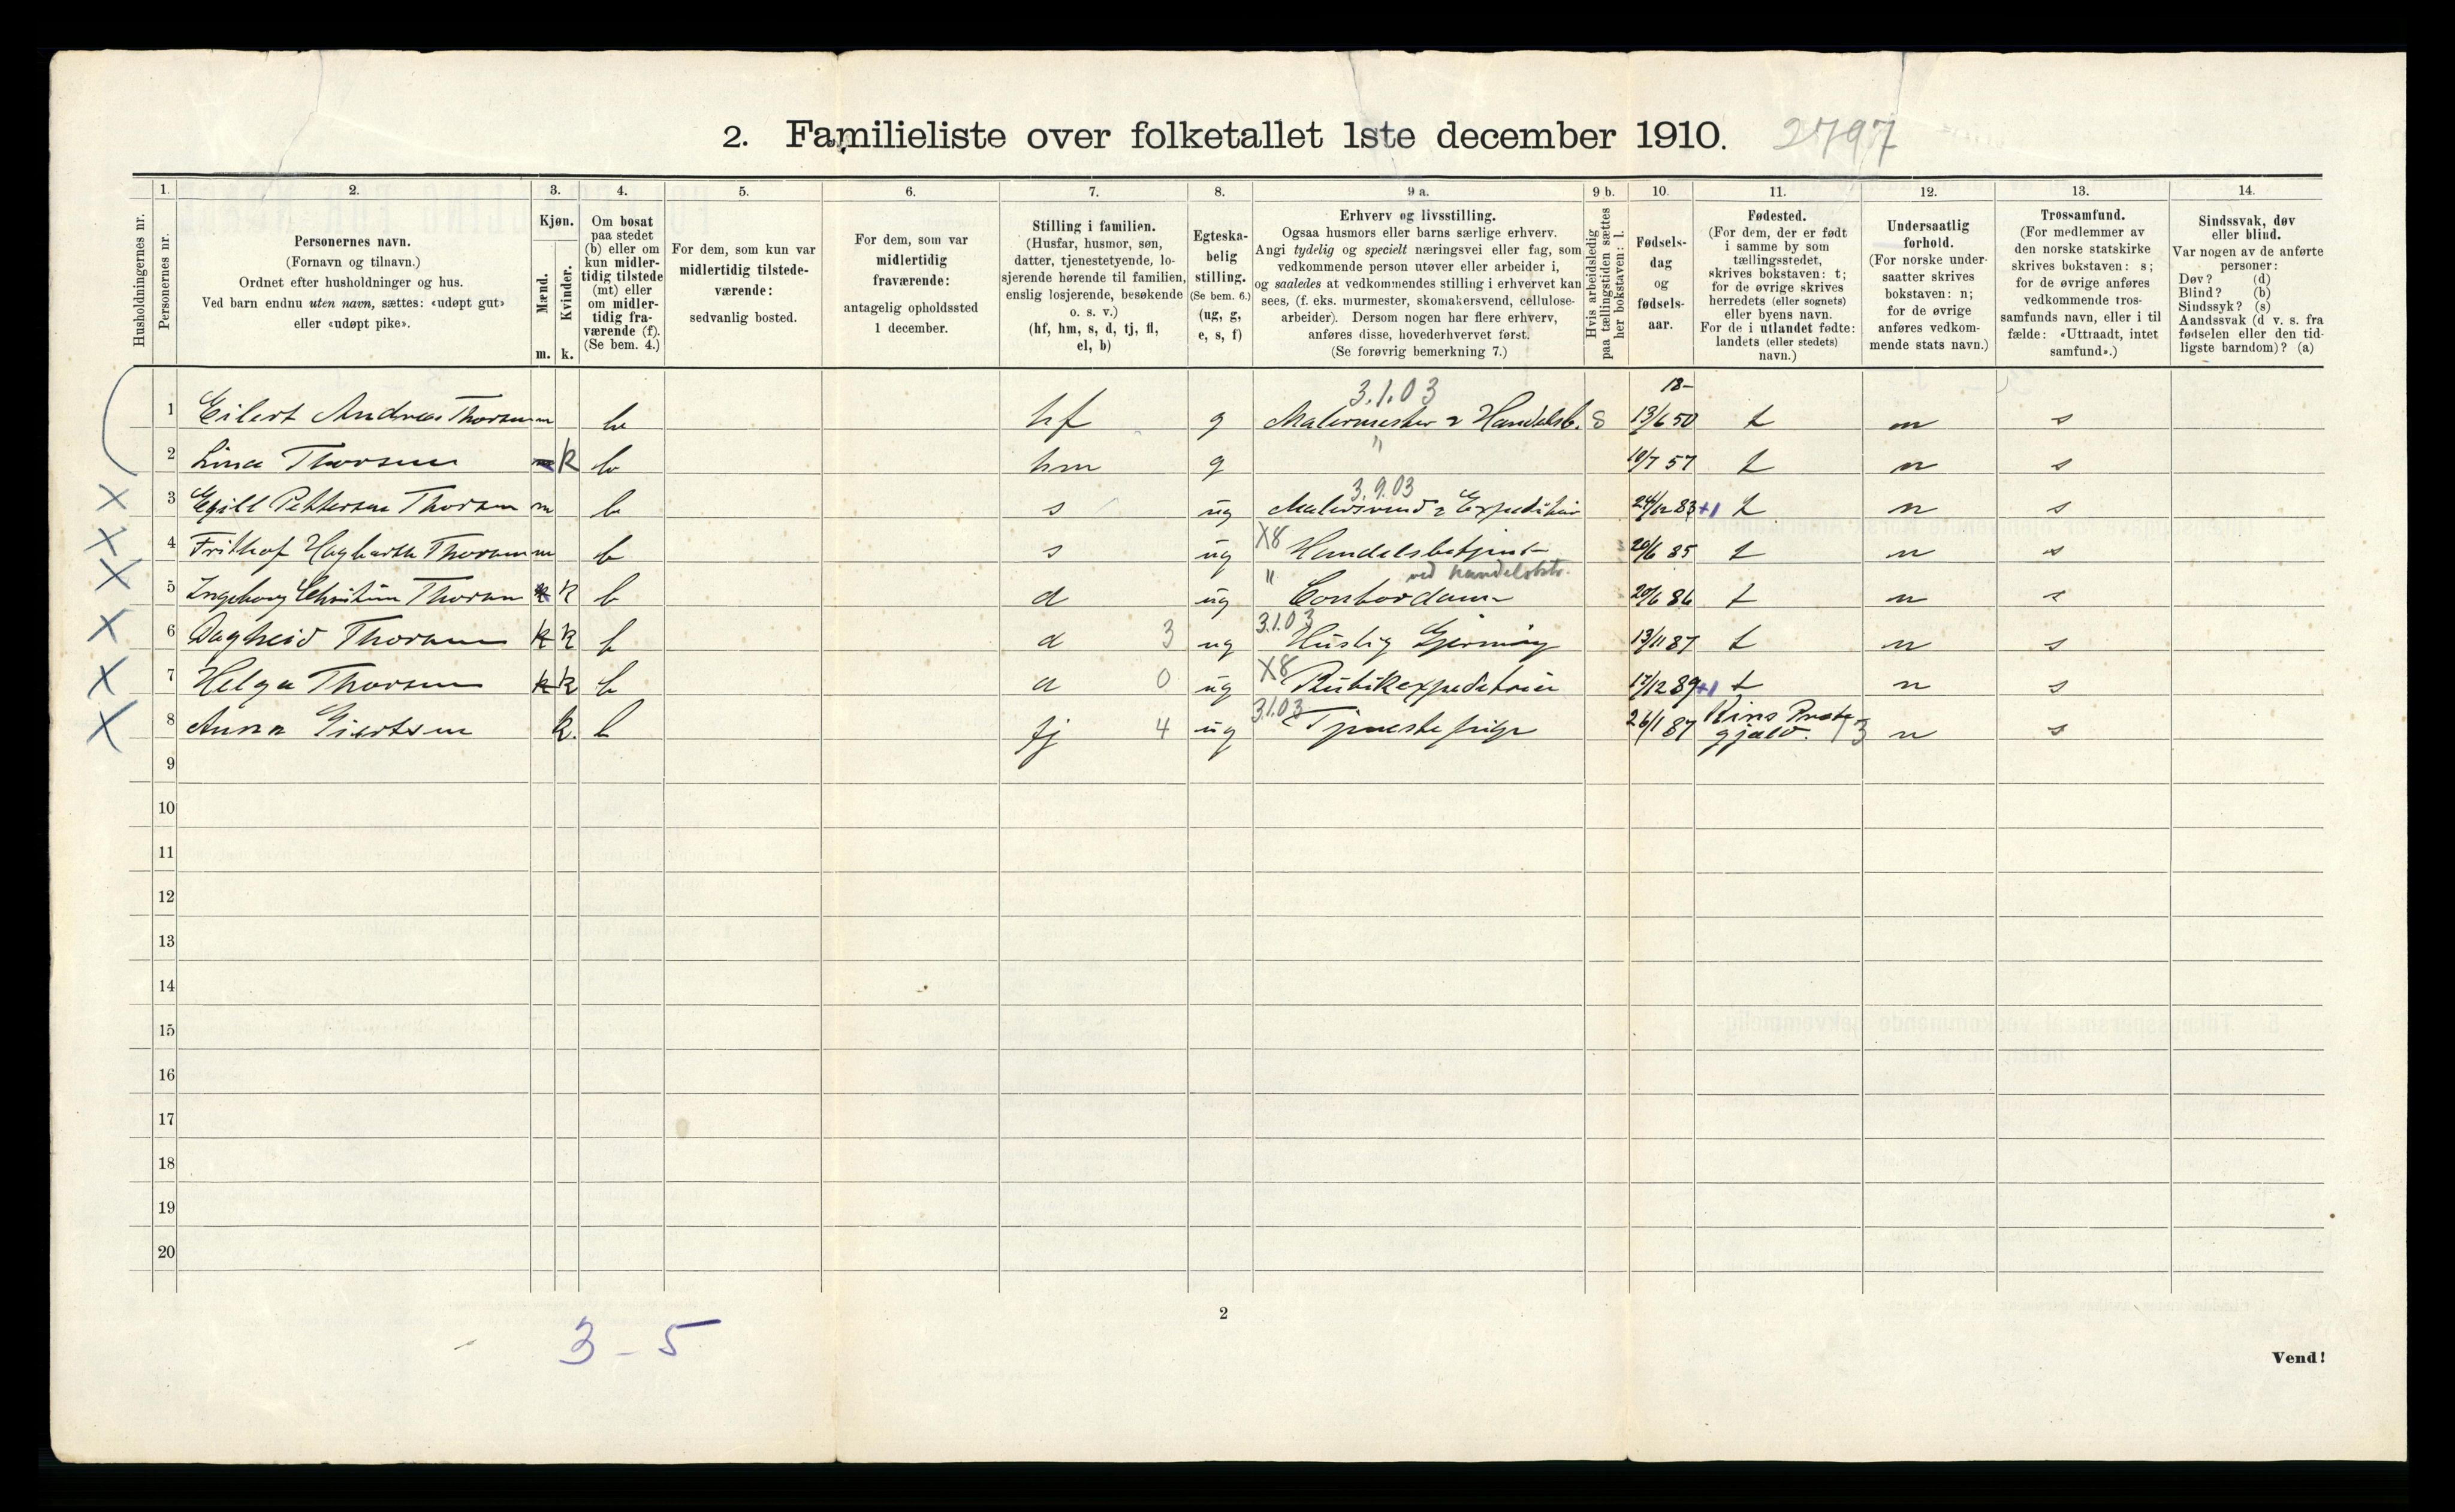 2. Familieliste over folketallet 1ste december 1910. 2797
1. 2. 3. 4. 5. 6. 7. 8. 9 a. 9 b. 10. 11. 12. 13. 14.
Husholdningernes nr.
Personernes nr.
Personernes navn.
(Fornavn og tilnavn.)
Ordnet efter husholdninger og hus.
Ved barn endnu uten navn, sættes: «udøpt gut»
eller «udøpt pike».
Kjøn.
Mænd.
Kvinder.
m. k.
Om bosat
paa stedet
(b) eller om
kun midler-
tidig tilstede
(mt) eller
om midler-
tidig fra-
værende (f).
(Se bem. 4.)
For dem, som kun var
midlertidig tilstede-
værende:
sedvanlig bosted.
For dem, som var
midlertidig
fraværende:
antagelig opholdssted
1 december.
Stilling i familien.
(Husfar, husmor, søn,
datter, tjenestetyende, lo-
sjerende hørende til familien,
enslig losjerende, besøkende
o. s. v.)
(hf, hm, s, d, tj, fl,
el, b)
Egteska-
belig
stilling.
(Se bem. 6.)
(ug, g,
e, s, f)
Erhverv og livsstilling.
Ogsaa husmors eller barns særlige erhverv.
Angi tydelig og specielt næringsvei eller fag, som
vedkommende person utøver eller arbeider i,
og saaledes at vedkommendes stilling i erhvervet kan
sees, (f. eks. murmester, skomakersvend, cellulose-
arbeider). Dersom nogen har flere erhverv,
anføres disse, hovederhvervet først.
(Se forøvrig bemerkning 7.)
Hvis arbeidsledig
paa tællingstiden sættes
her bokstaven: l.
Fødsels-
dag
og
fødsels-
aar.
Fødested.
(For dem, der er født
i samme by som
tællingsstedet,
skrives bokstaven: t;
for de øvrige skrives
herredets (eller sognets)
eller byens navn.
For de i utlandet fødte:
landets (eller stedets)
navn.)
Undersaatlig
forhold.
(For norske under-
saatter skrives
bokstaven: n;
for de øvrige
anføres vedkom-
mende stats navn.)
Trossamfund.
(For medlemmer av
den norske statskirke
skrives bokstaven: s;
for de øvrige anføres
vedkommende tros-
samfunds navn, eller i til
fælde: «Uttraadt, intet
samfund».)
Sindssvak, døv
eller blind.
Var nogen av de anførte
personer:
Døv? (d)
Blind? (b)
Sindssyk? (s)
Aandssvak (d v. s. fra
fødselen eller den tid-
ligste barndom)? (a)
3.1.03 18-
1 Eilert Andreas Thorsen m b hf g Malermester & Handelsb. 8 13/6 50 t n s
2 Lina Thorsen m k b hm g " 10/7 57 t n s
3.9.03
X 3 Egill Petterson Thorsen m b s ug Malersvend & Expeditør 24/12 83 +1 t n s
X 4 Frithof Hagbarth Thorsen m b s ug X8 Handelsbetjent 20/6 85 t n s
" ved handelsktr.
X 5 Ingeborg Christine Thorsen k k b d ug Contordame 20/6 86 t n s
X 6 Dagheid Thorsen k k b d 3 ug 3.1.03 Huslig Gjerning 13/11 87 t n s
X 7 Helga Thorsen k k b d 0 ug X8 Butikexpeditrice 17/12 89 +1 t n s
X 8 Anna Giertsen k. b tj 4 ug 3.1.03 Tjenestepige 26/1 87 Kins Præste-
gjeld. 13 n s
9
10
11
12
13
14
15
16
17
18
19
20
2
3 - 5
Vend!